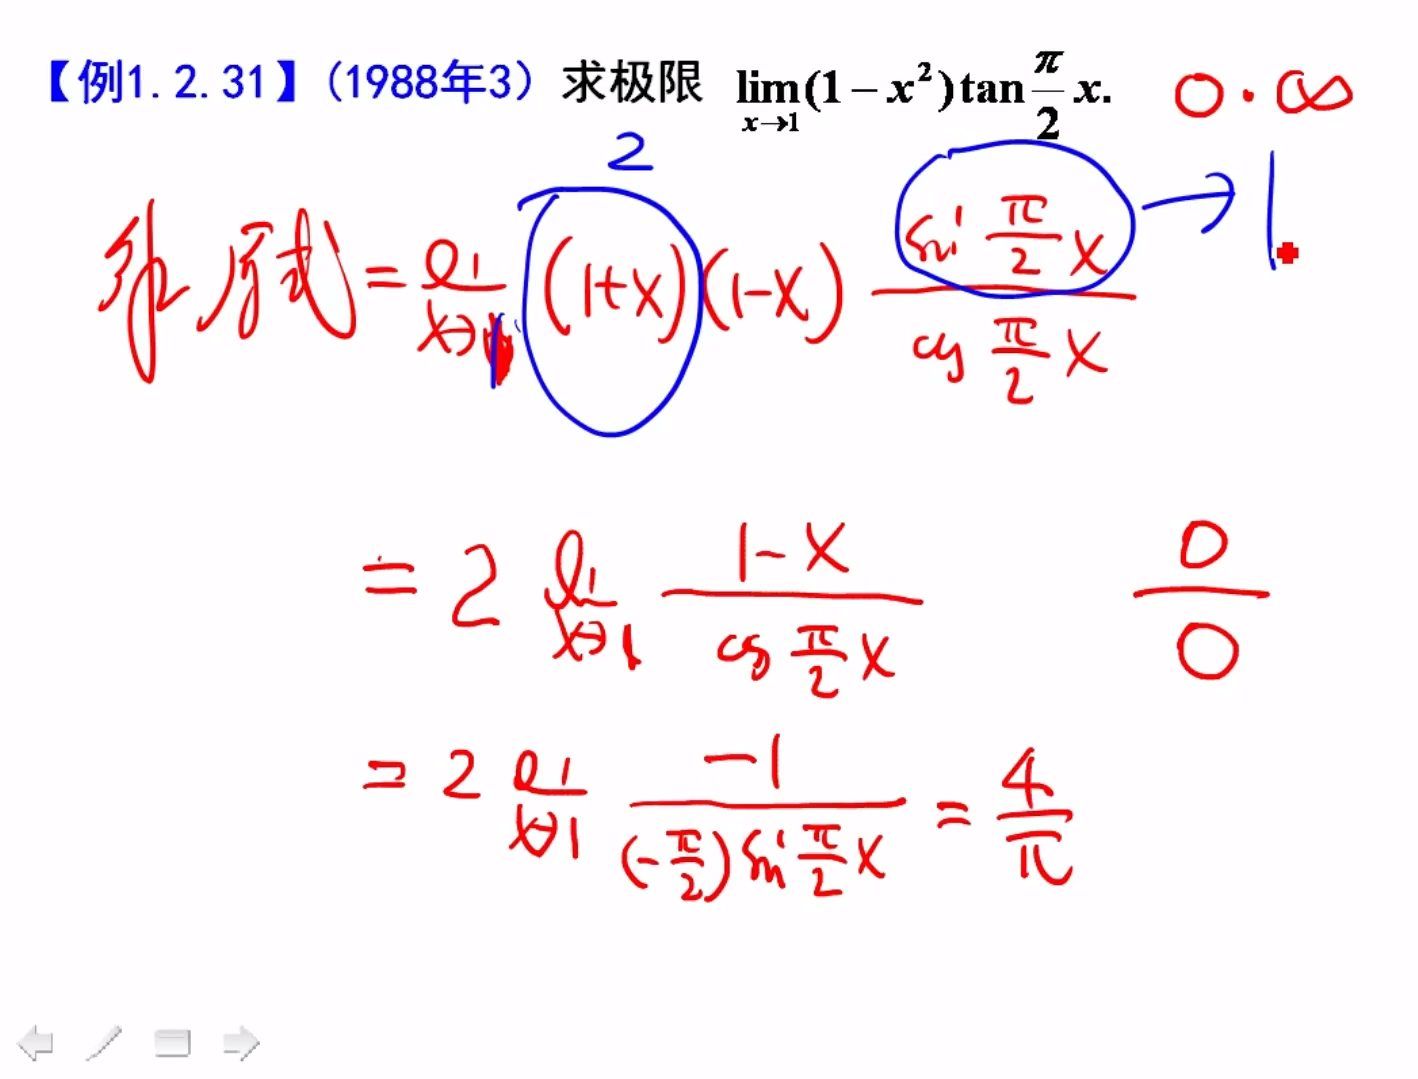 【例1.2.31】(1988年3) 求极限 lim_{x→1}(1-x²)tan π/2 x. 0·∞
2 → 1
原式 = lim_{x→1} (1+x)(1-x) sin π/2 x / cos π/2 x
= 2 lim_{x→1} 1-x / cos π/2 x 0/0
= 2 lim_{x→1} -1 / (-π/2) sin π/2 x = 4/π